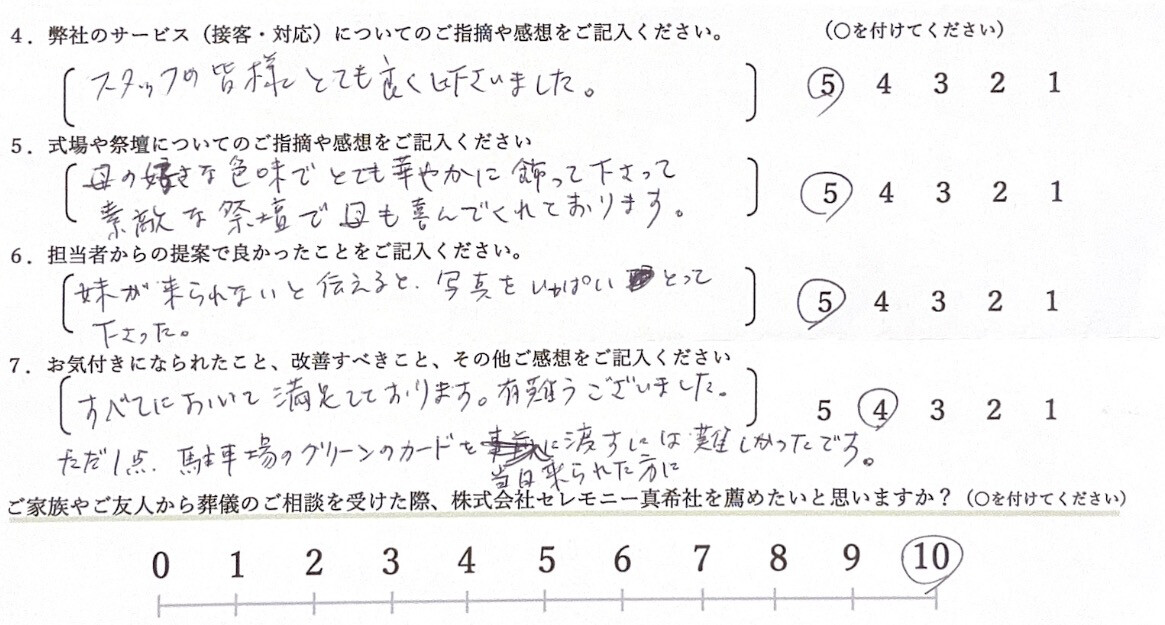 4．弊社のサービス（接客・対応）についてのご指摘や感想をご記入ください。 （○を付けてください）
スタッフの皆様とても良く下さいました。 5 4 3 2 1
5．式場や祭壇についてのご指摘や感想をご記入ください
母の好きな色味でとても華やかに飾って下さって
素敵な祭壇で母も喜んでくれております。 5 4 3 2 1
6．担当者からの提案で良かったことをご記入ください。
妹が来られないと伝えると、写真をいっぱいとって
下さった。 5 4 3 2 1
7．お気付きになられたこと、改善すべきこと、その他ご感想をご記入ください
すべてにおいて満足しております。有難うございました。 5 4 3 2 1
ただ1点、駐車場のグリーンのカードを に渡すには難しかったです。
当日来られた方に
ご家族やご友人から葬儀のご相談を受けた際、株式会社セレモニー真希社を薦めたいと思いますか？（○を付けてください）
0 1 2 3 4 5 6 7 8 9 10